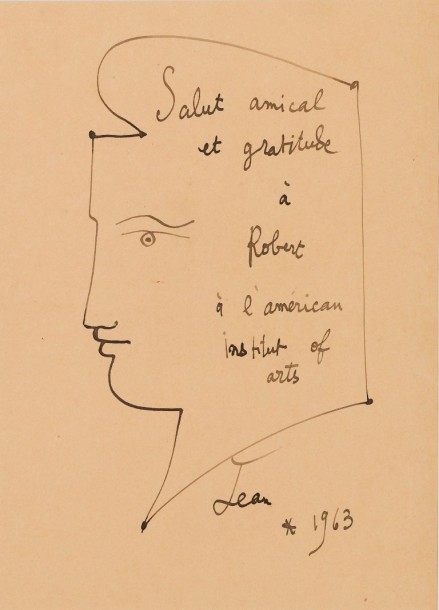 Salut amical
et gratitude
à
Robert
à l'américan
institut of
arts
Jean
* 1963